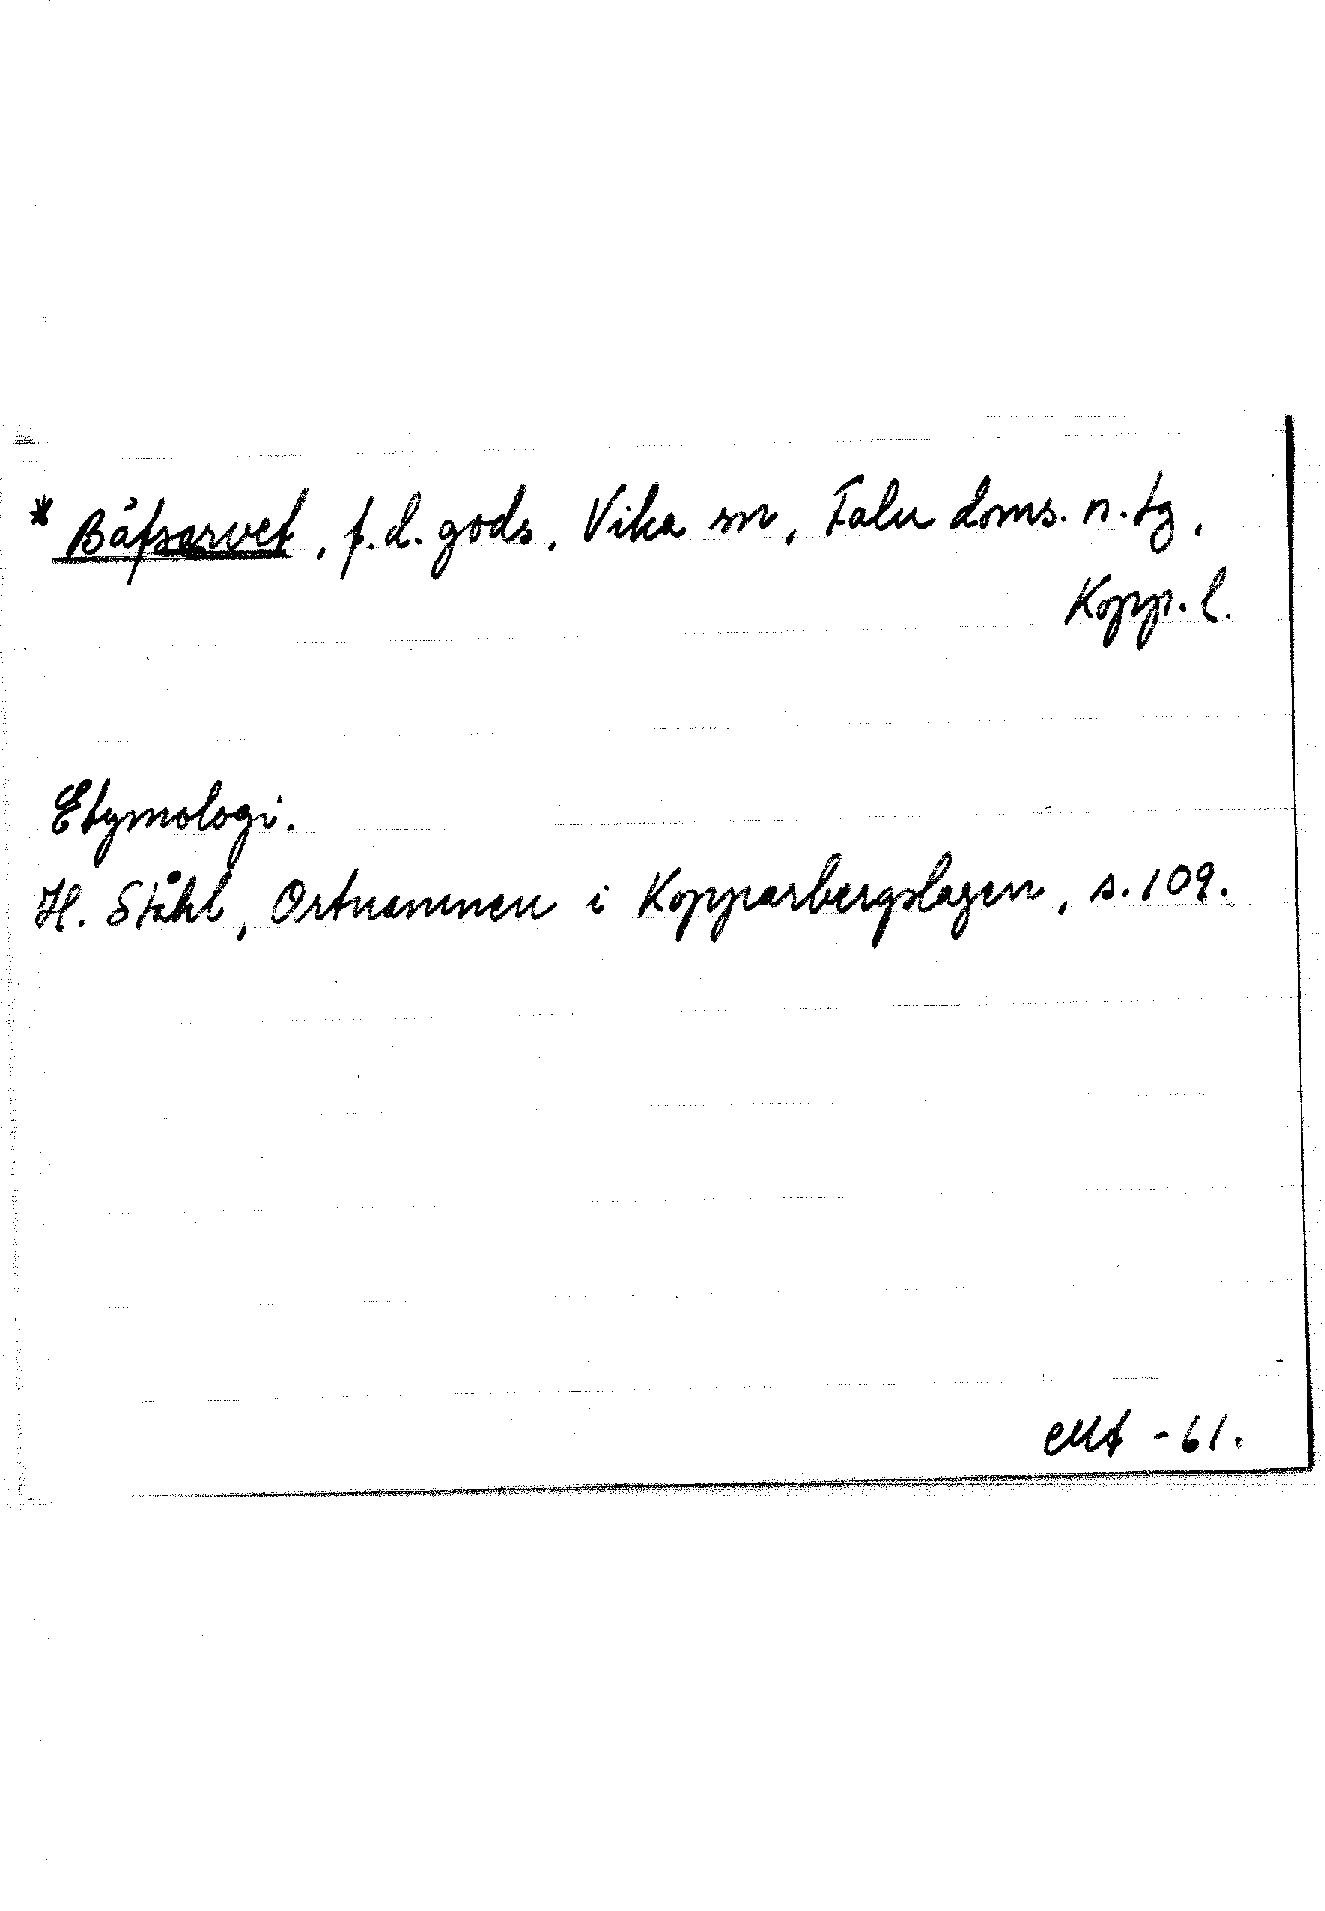 * Båfsarvet, f.d. gods, Vika sn, Falu doms. n. tg,
Kopp. l.
Etymologi.
H. Ståhl, Ortnamnen i Kopparbergslagen, s. 109.
-61.